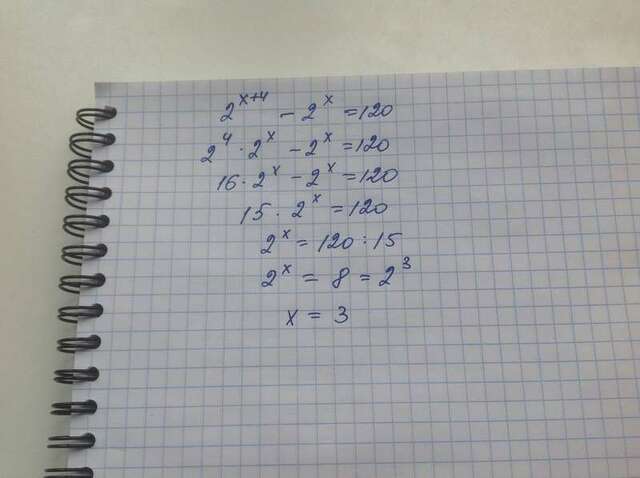 2^{x+4} - 2^x = 120
2^4 · 2^x - 2^x = 120
16 · 2^x - 2^x = 120
15 · 2^x = 120
2^x = 120 : 15
2^x = 8 = 2^3
x = 3